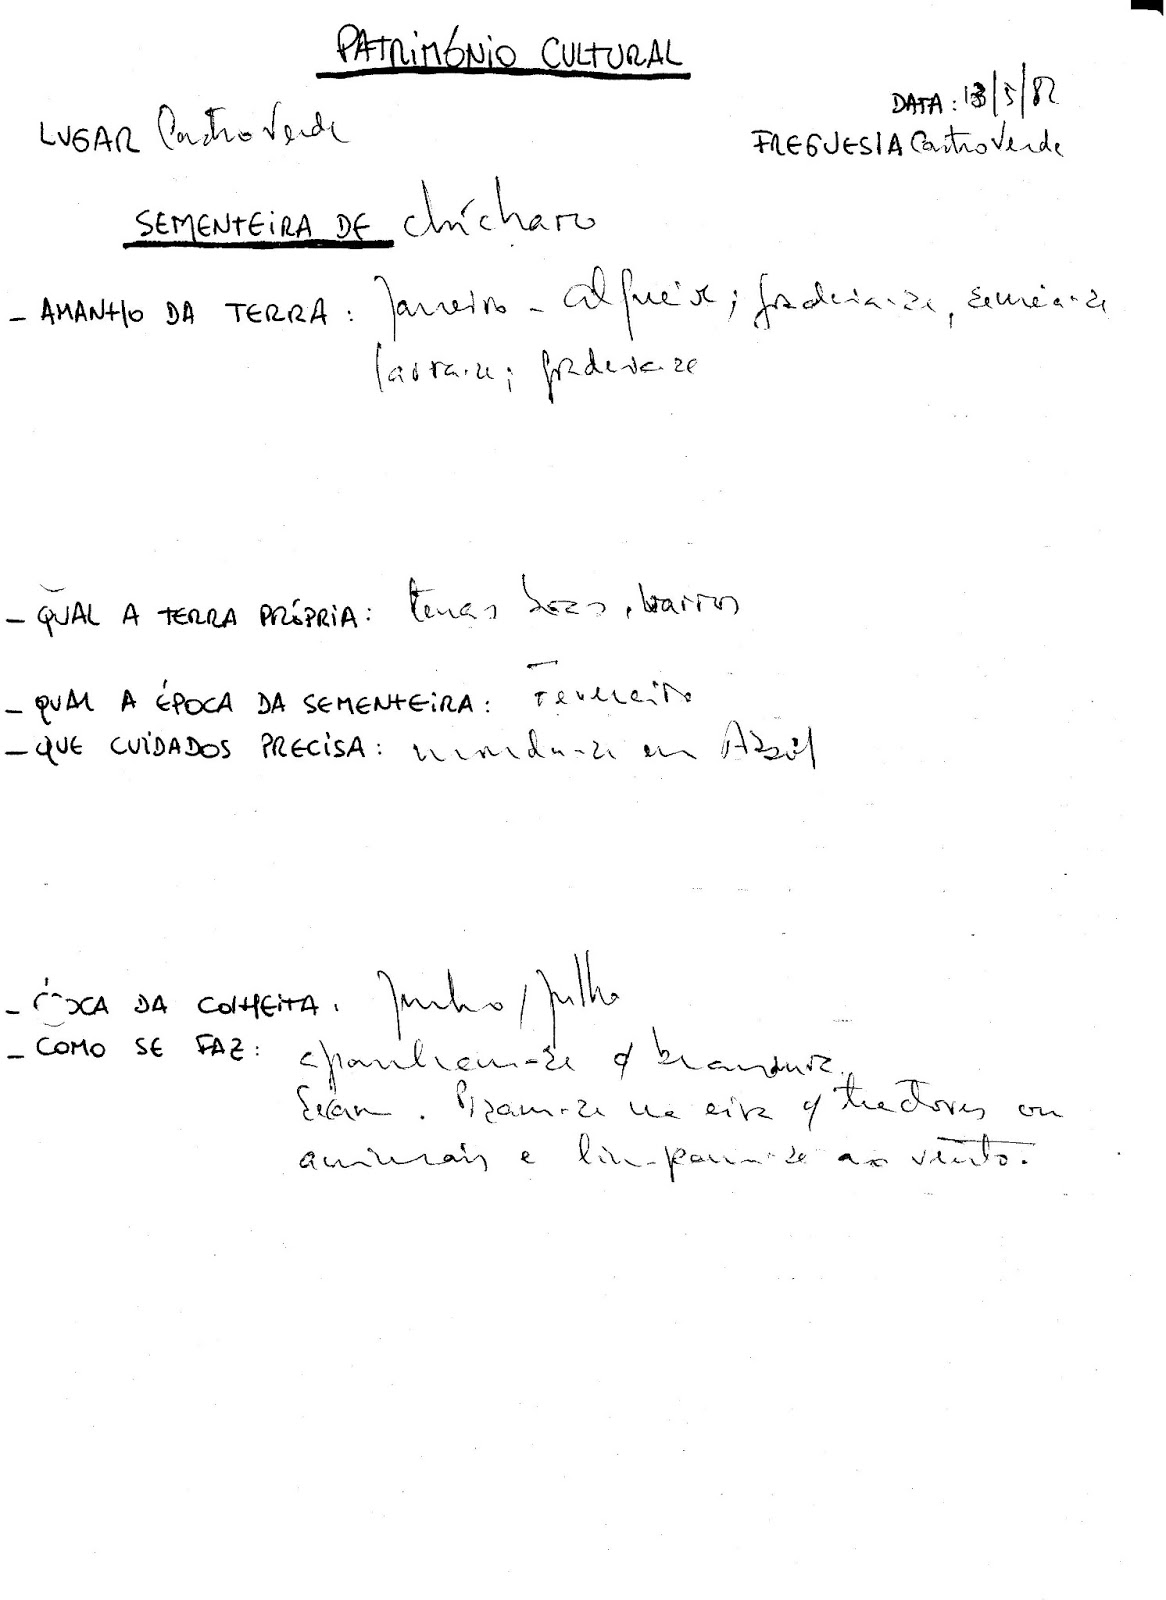 PATRIMÓNIO CULTURAL
DATA: 13/5/82
LUGAR Castro Verde
FREGUESIA Castro Verde
SEMENTEIRA DE chícharo
- AMANHO DA TERRA: Janeiro - alqueive; gradeia-se, semeia-se
lavra-se; gradeia-se
- QUAL A TERRA PRÓPRIA: terras boas, barros
- QUAL A ÉPOCA DA SEMENTEIRA: Fevereiro
- QUE CUIDADOS PRECISA: monda-se em Abril
- ÉPOCA DA COLHEITA: Junho/Julho
- COMO SE FAZ: apanham-se c/ brandura.
Secam. Pisam-se na eira c/ tractores ou
animais e limpam-se ao vento.